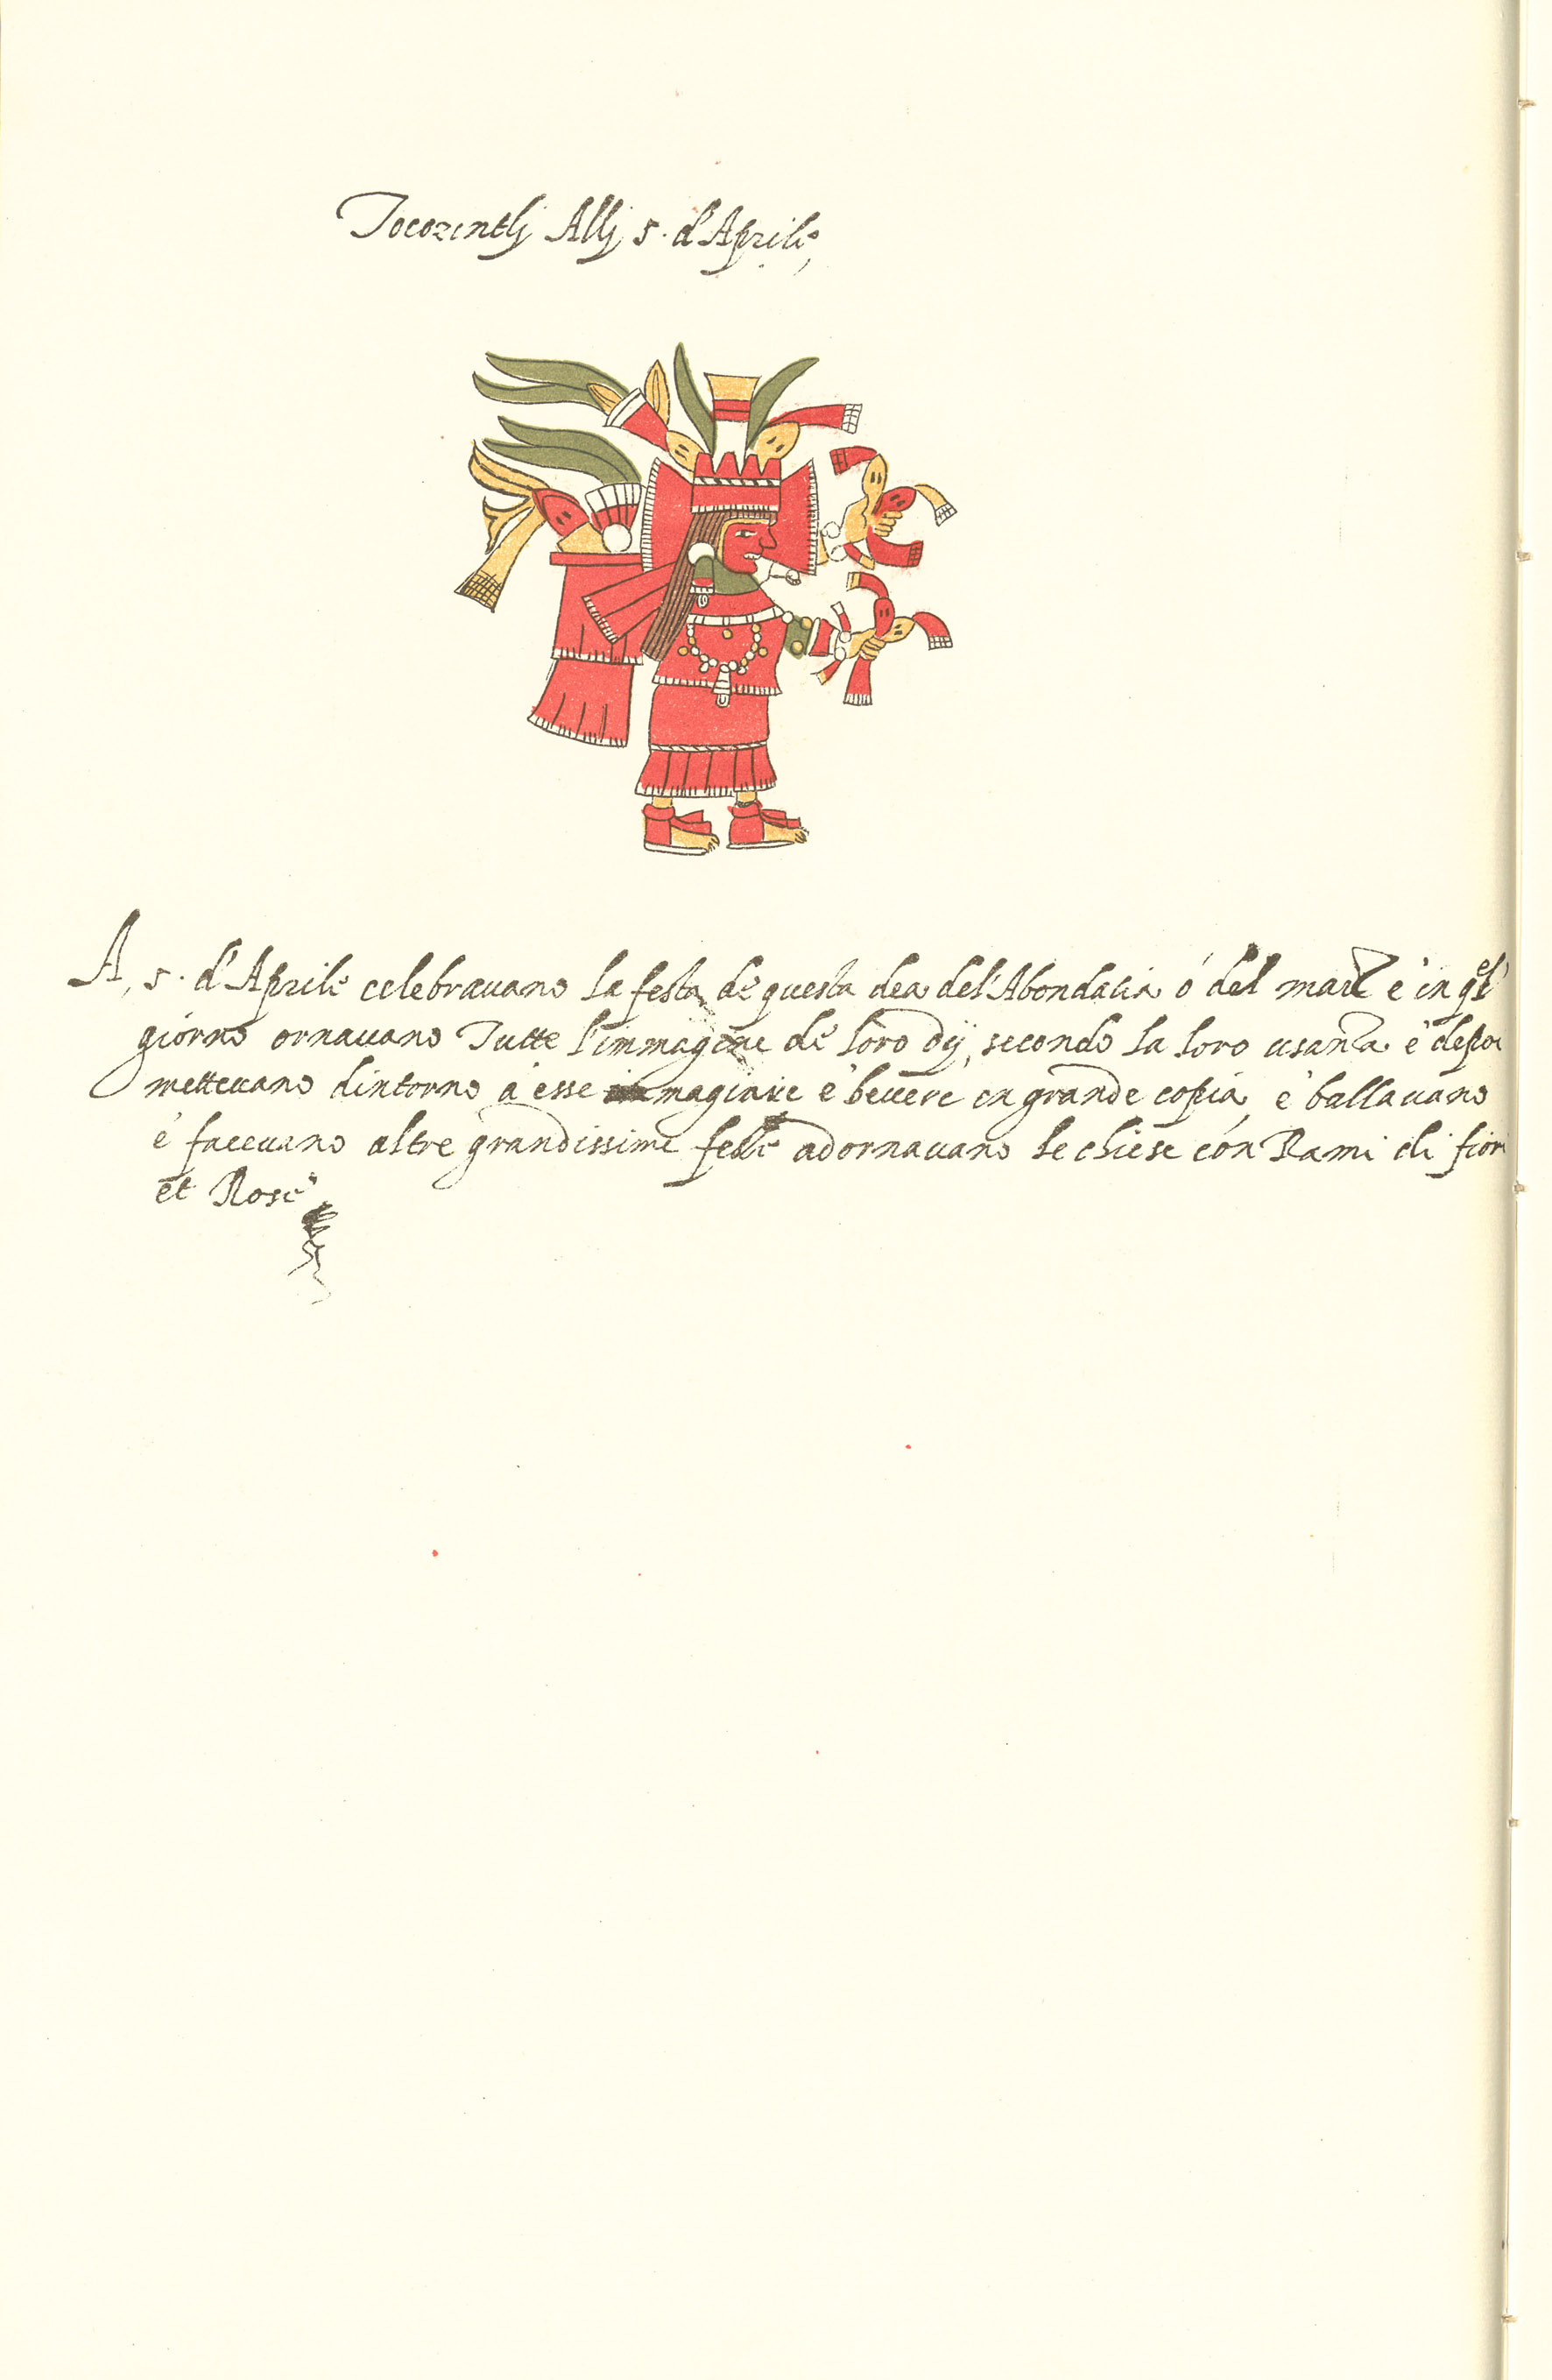 Tocozintlj Allj 5. d'Aprile,
A, 5. d'Aprile celebrauano la festa dè questa dea del'Abondatia ó del maiz è in q̃l
giorno ornauano Tutte l'immagine dè loro dij, secondo la loro usanza è depoi
metteuano dintorno à esse magiare è beuere in grande copia, è ballauano
è faceuano altre grandissime feste adornauano le chiese con Rami di fiori
et Rose